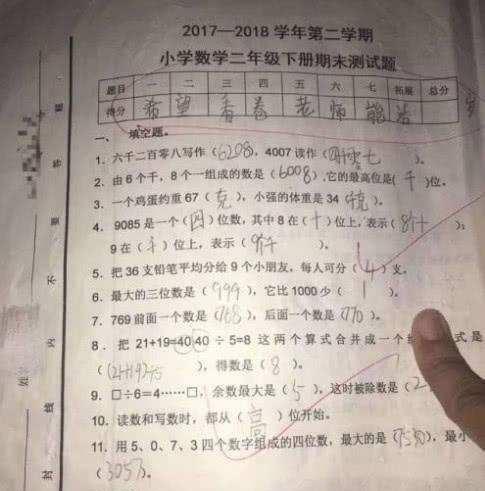 2017—2018 学年第二学期
小学数学二年级下册期末测试题
题目 一 二 三 四 五 六 七 拓展 总分
得分 希 望 看 卷 老 师 能 给
一、 填空题。
1、六千二百零八写作（6208），4007 读作（四千零七 ）。
2、由 6 个千，8 个一组成的数是（6008），它的最高位是（千）位。
3、一个鸡蛋约重 67（克），小强的体重是 34（千克）。
4、9085 是一个（四）位数，其中 8 在（十）位上，表示（8个十 ）；
9 在（千）位上，表示（9个千 ）。
5、把 36 支铅笔平均分给 9 个小朋友，每人可分（4）支。
6、最大的三位数是（999），它比 1000 少（1 ）。
7、769 前面一个数是（768），后面一个数是（770）。
8、把 21+19=40 40 ÷ 5=8 这 两 个 算 式 合 并 成 一 个 式 是
（(21+19)÷5 ），得数是（8 ）。
9、□÷6=4……□，余数最大是（5 ），这时被除数是（2
10、读数和写数时，都从（高 ）位开始。
11、用 5、0、7、3 四个数字组成的四位数，最大的是（7530），最小
（3057）。
题
答
要
不
内
线
封
姓